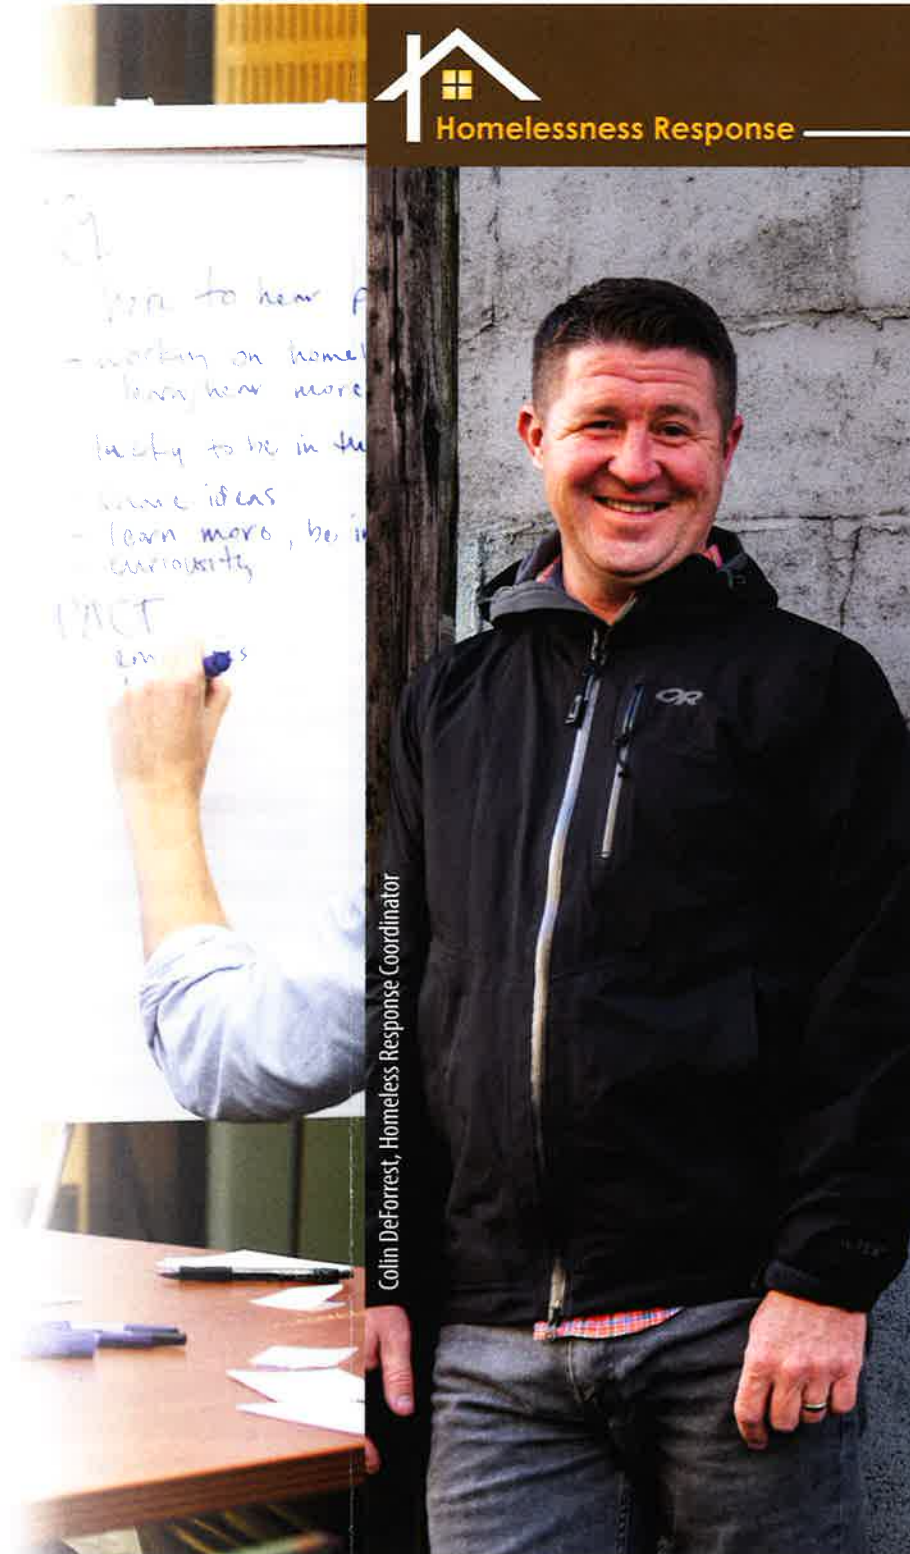 Homelessness Response
to hear
working on homel
learn, hear more
lucky to be in the
ideas
learn more, be in
curiousity
OR
Colin DeForrest, Homeless Response Coordinator